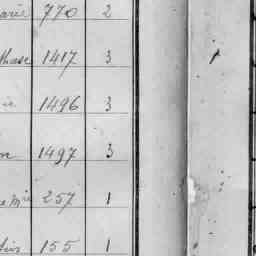 arie 770 2
thase 1417 3
ie 1496 3
ne 1497 3
e Mie 257 1
tin 155 1